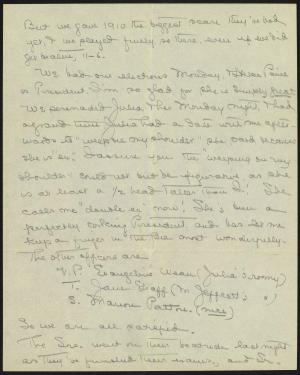 But we gave 1910 the biggest scare they've had
yet, & we played finely, so there, even if we did
get beaten, 11-6.
We had our elections Monday,
is President. I'm so glad, for she is simply great.
We serenaded Julia, the Monday night, & had
a grand time. Julia had a date with me after-
wards to "weep on my shoulder" she said because
she is ex. I assure you the weeping on my
shoulder could not but be figurative as she
is at least a 1/2 head taller than I! She
calls me "double ex" now! She's been a
perfectly corking President and has let me
keep a finger in the pie most wonderfully.
The other officers are
V.P. Evangeline (Julia's roomy)
T. Jane (M. Jeffcott's " )
S. Marion Patton. (nice)
So we are all
The Srs. went on their boatride last night
as they've finished their exams, and Dr.